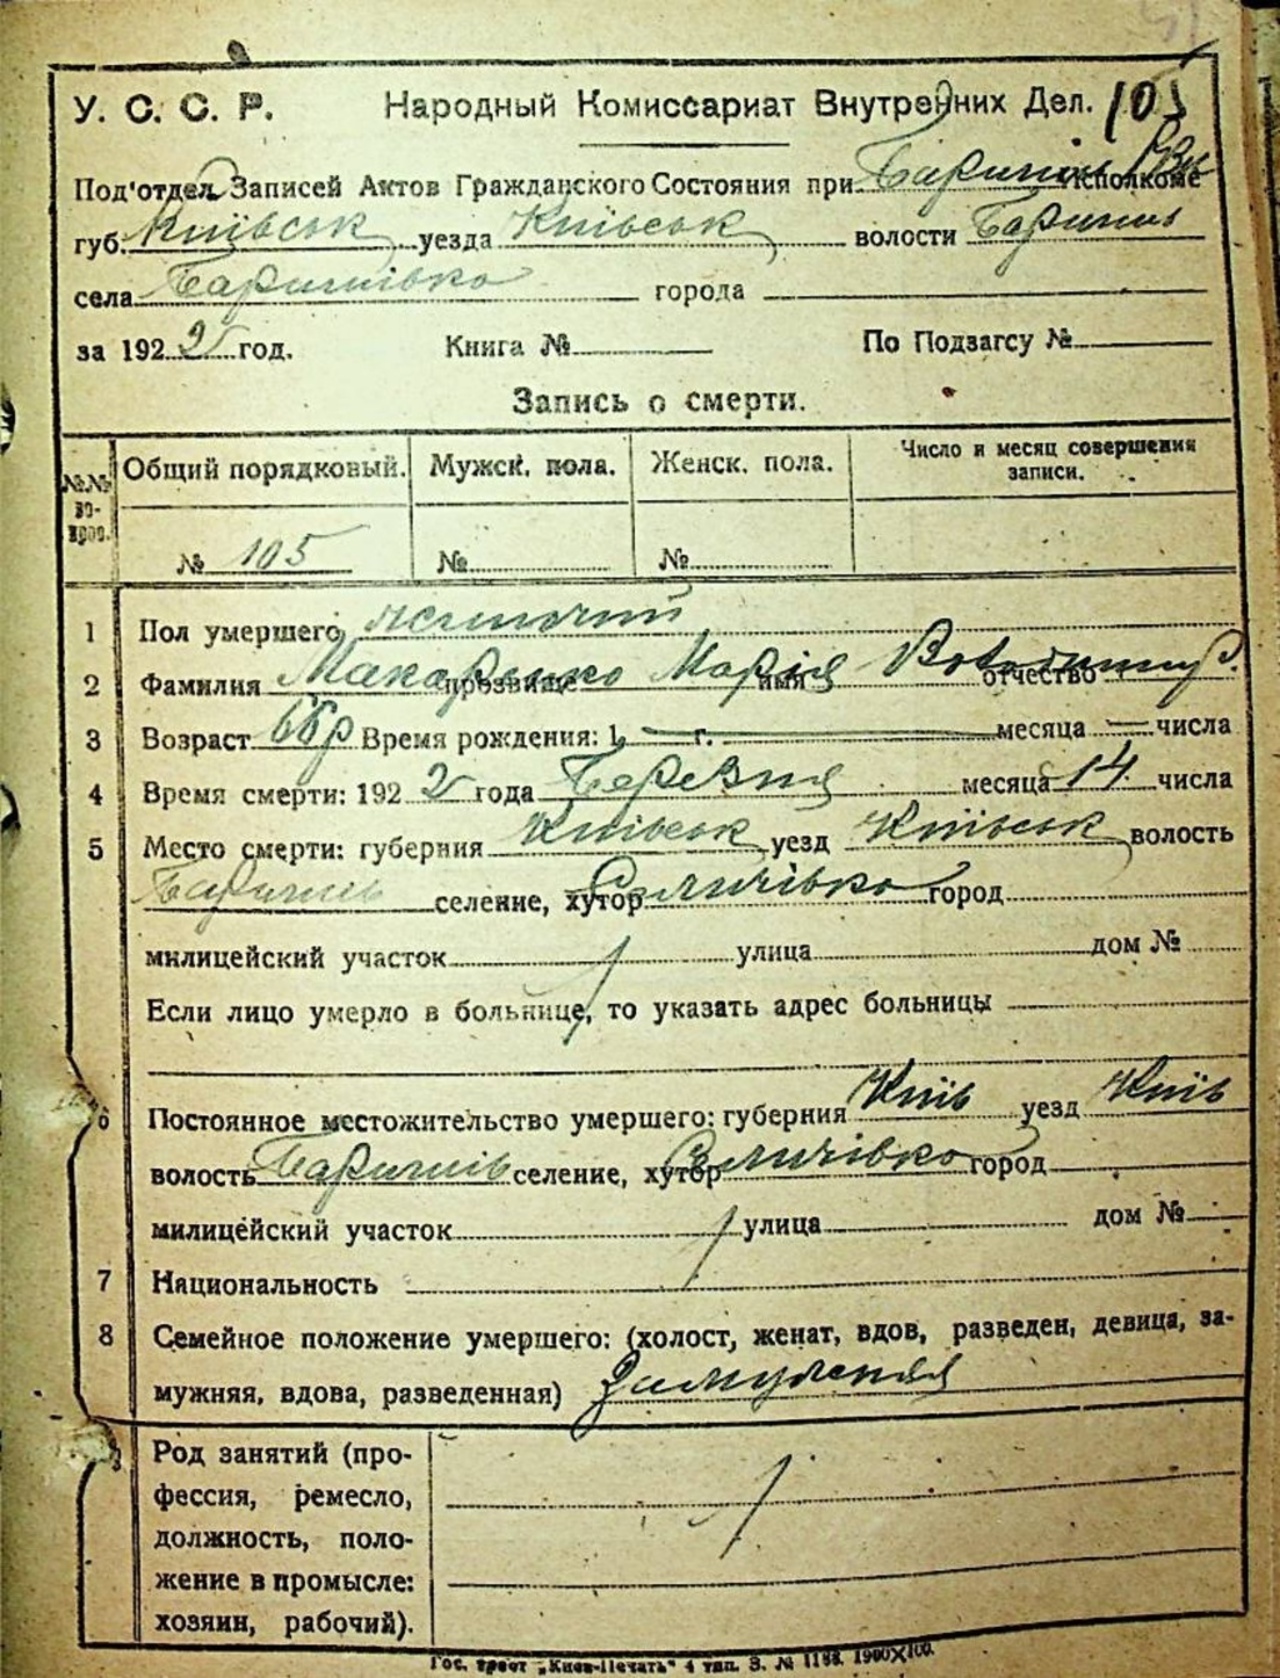 У. С. С. Р. Народный Комиссариат Внутренних Дел. 105
Под'отдел Записей Актов Гражданского Состояния при Исполкоме
губ. Київськ уезда Київськ волости Баришів
села Баришівка города
за 192 2 год. Книга № По Подзагсу №
Запись о смерти.
№№ вопрос. Общий порядковый. Мужск. пола. Женск. пола. Число и месяц совершения записи.
№ 105 № №
1 Пол умершего жіночий
2 Фамилия прозвище имя отчество Макаренко Марія Володимир.
3 Возраст 66 р Время рождения: 1 г. месяца числа
4 Время смерти: 192 2 года Березня месяца 14 числа
5 Место смерти: губерния Київськ уезд Київськ волость
Баришів селение, хутор Селичівка город
милицейский участок улица дом №
Если лицо умерло в больнице, то указать адрес больницы
6 Постоянное местожительство умершего: губерния Київ уезд Київ
волость Баришів селение, хутор Селичівка город
милицейский участок улица дом №
7 Национальность
8 Семейное положение умершего: (холост, женат, вдов, разведен, девица, за-
мужняя, вдова, разведенная) Замужняя
Род занятий (про-
фессия, ремесло,
должность, поло-
жение в промысле:
хозяин, рабочий).
Гос. трест „Киев-Печать" 4 тип. З. № 1188. 1900X100.